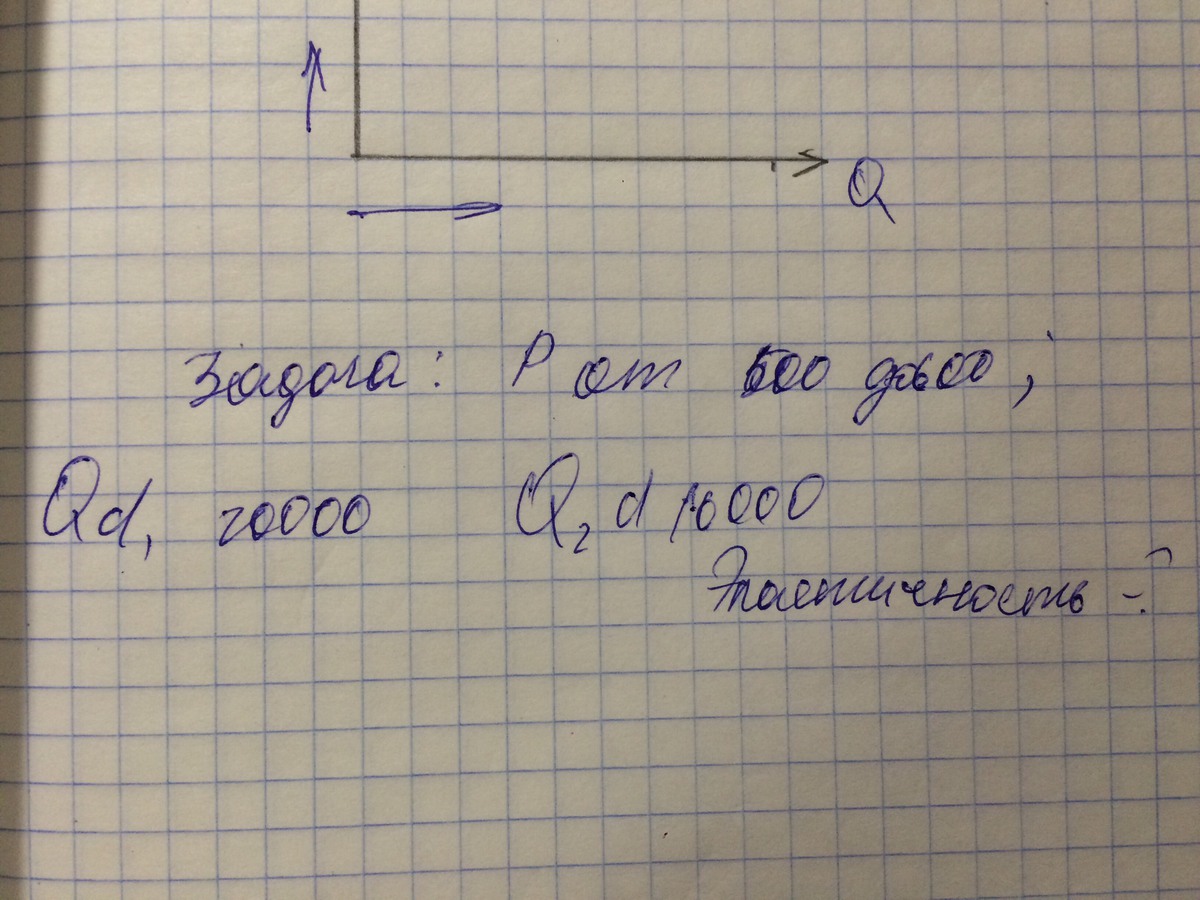 Q
Задача: P от 500 до 600;
Qd, 20000 Q2 d 16000
Эластичность - ?